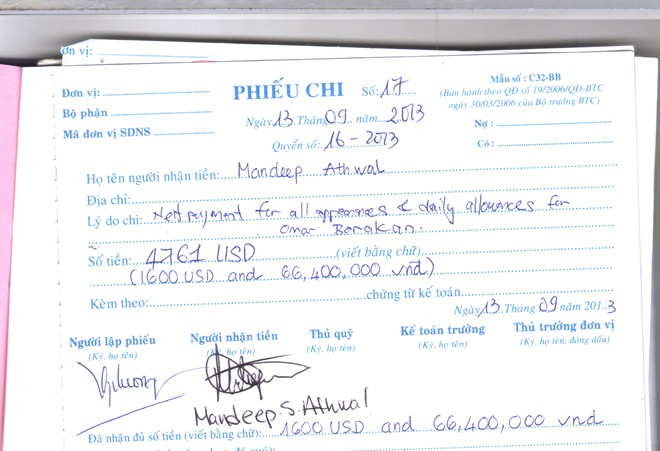 ơn vị:
Đơn vị:
Bộ phận
Mã đơn vị SDNS
PHIẾU CHI Số: 17
Ngày 13 Tháng 09 năm 2013
Quyển số: 16 - 2013
Mẫu số : C32-BB
(Ban hành theo QĐ số 19/2006/QĐ-BTC
ngày 30/03/2006 của Bộ trưởng BTC)
Nợ :
Có :
Họ tên người nhận tiền: Mandeep Athwal
Địa chỉ:
Lý do chi: Net payment for all appearances & daily allowances for
Omar Berakan.
Số tiền: 4761 USD (viết bằng chữ)
(1600 USD and 66,400,000 vnd)
Kèm theo: chứng từ kế toán
Ngày 13 Tháng 09 năm 2013
Người lập phiếu Người nhận tiền Thủ quỹ Kế toán trưởng Thủ trưởng đơn vị
(Ký, họ tên) (Ký, họ tên) (Ký, họ tên) (Ký, họ tên) (Ký, họ tên, đóng dấu)
Mandeep.S.Athwal
Đã nhận đủ số tiền (viết bằng chữ): 1600 USD and 66,400,000 vnd